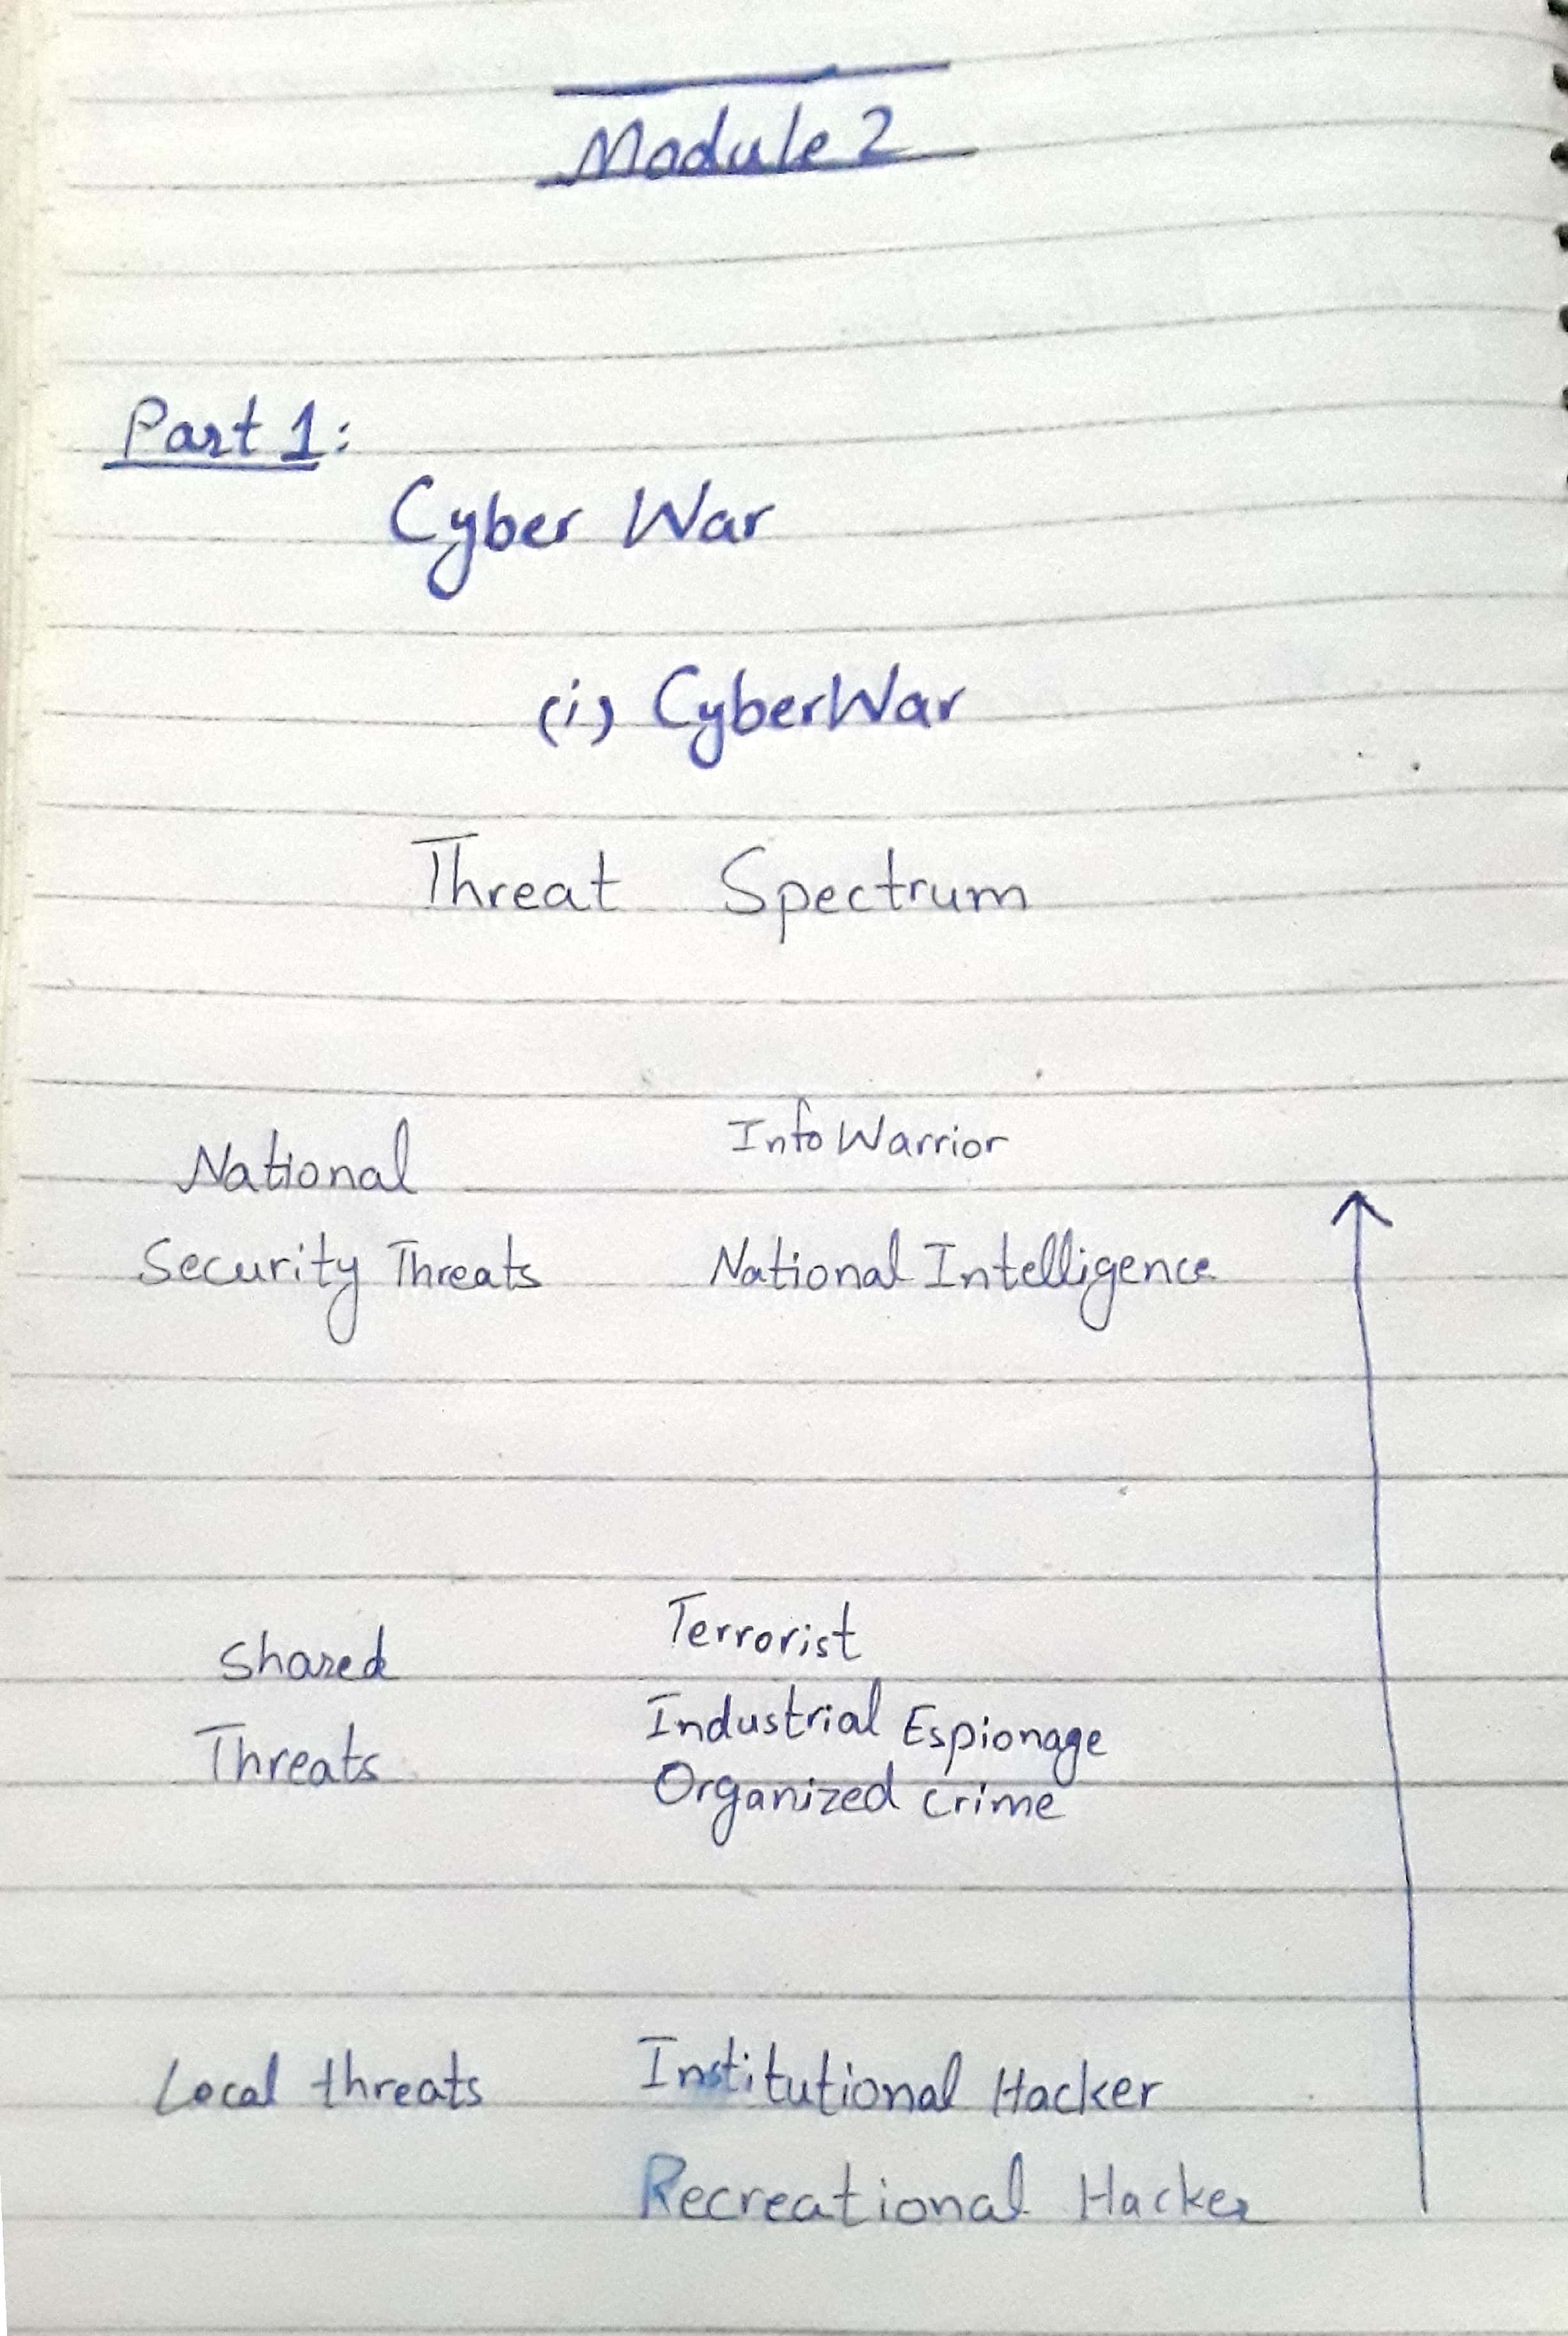 Module 2
Part 1:
Cyber War
(i) CyberWar
Threat Spectrum
National
Info Warrior
Security Threats
National Intelligence
Shared
Threats
Terrorist
Industrial Espionage
Organized crime
Local threats
Institutional Hacker
Recreational Hacker